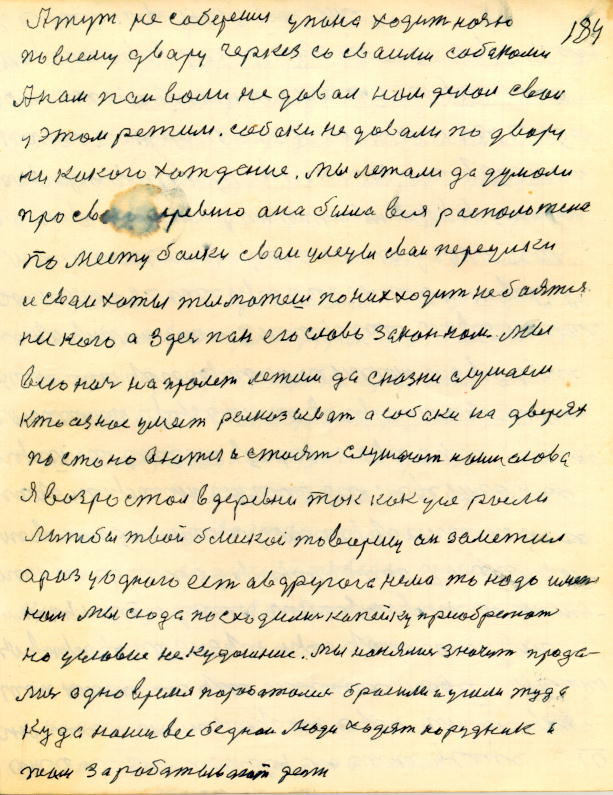 184
Атут не соберешся упана ходит ночю
повсему двару черкез со сваими собаками
Анам пан воли не довал ном делал сваи
у этом режим. собаки не довали по двару
ни какого хаждение. мы лежали да думали
про сваю деревню ана была вся расположена
по месту балки сваи улецы сваи переулки
и сваи хаты ты можеш по них ходит не боятся
ни кого а здес пан его слово закон ном. мы
всю ноч на пролет лежим да сказки слушаем
кто из нас умеет расказыват а собаки на дверях
постояно стоят слушают наши слова
Я возростал в деревни ток как усе росли
литбы твой близкой товарищ он заметил
араз у одного ест а в другога нема то надо имет
ном мы сюда посходилис копейку приобретат
но условие не кудошние. мы нанялис значит прода-
лис одно время поработали бросили и ушли туда
куда наши все бедные люди ходят на рудник и
там зарабатывают